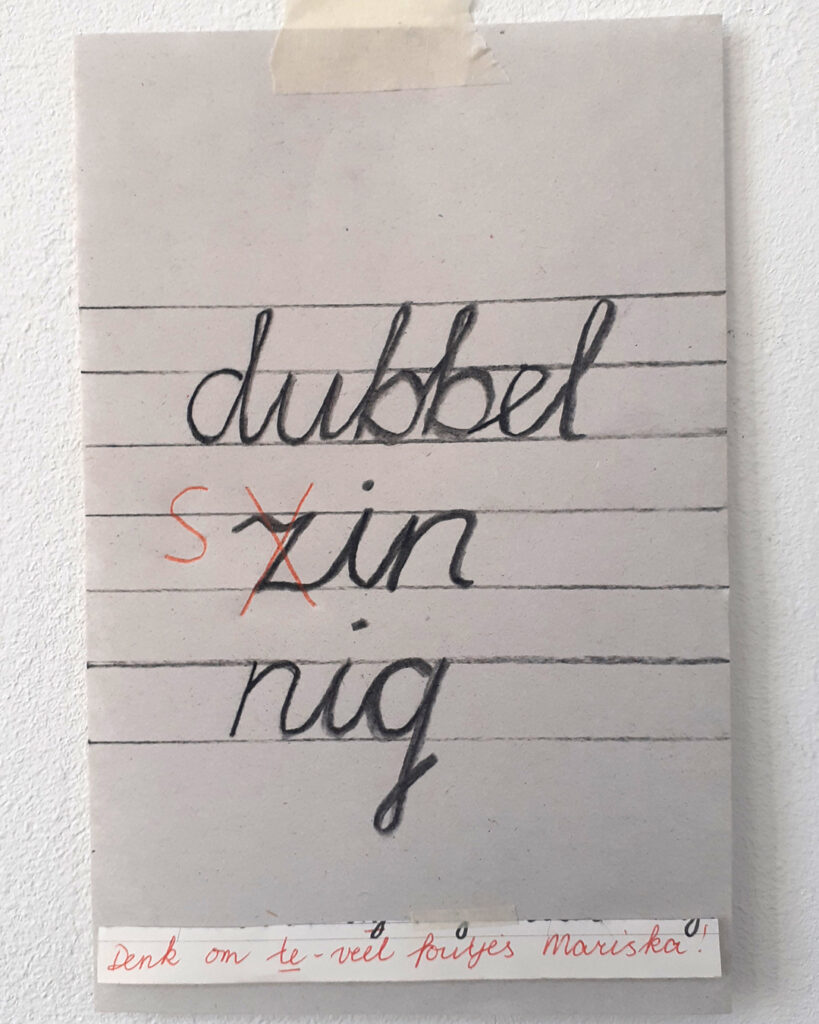 dubbel
S zin
nig
Denk om te-veel foutjes Mariska!